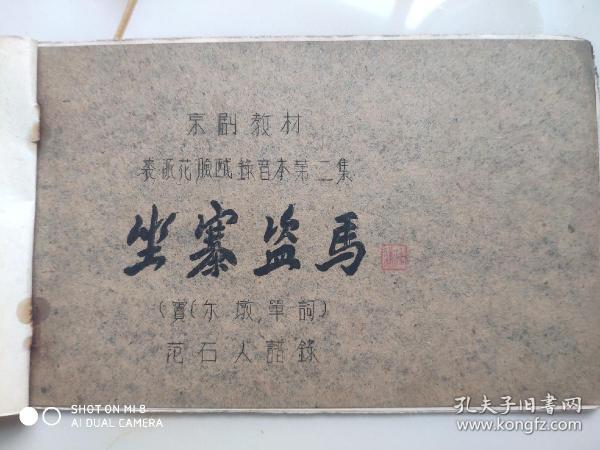 京剧教材
袭派花臉 錄音本第二集
坐寨盗馬
(竇(尔墩)單詞)
范石人譜錄
SHOT ON MI 8
AI DUAL CAMERA
孔夫子旧書网
www.kongfz.com